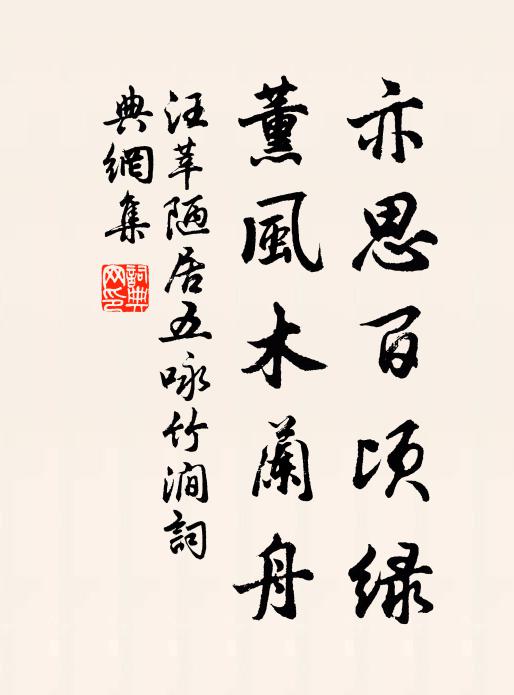 亦思百頃緑
薰風木蘭舟
汪莘陋居五咏竹澗詞
典網集
詞典
网印